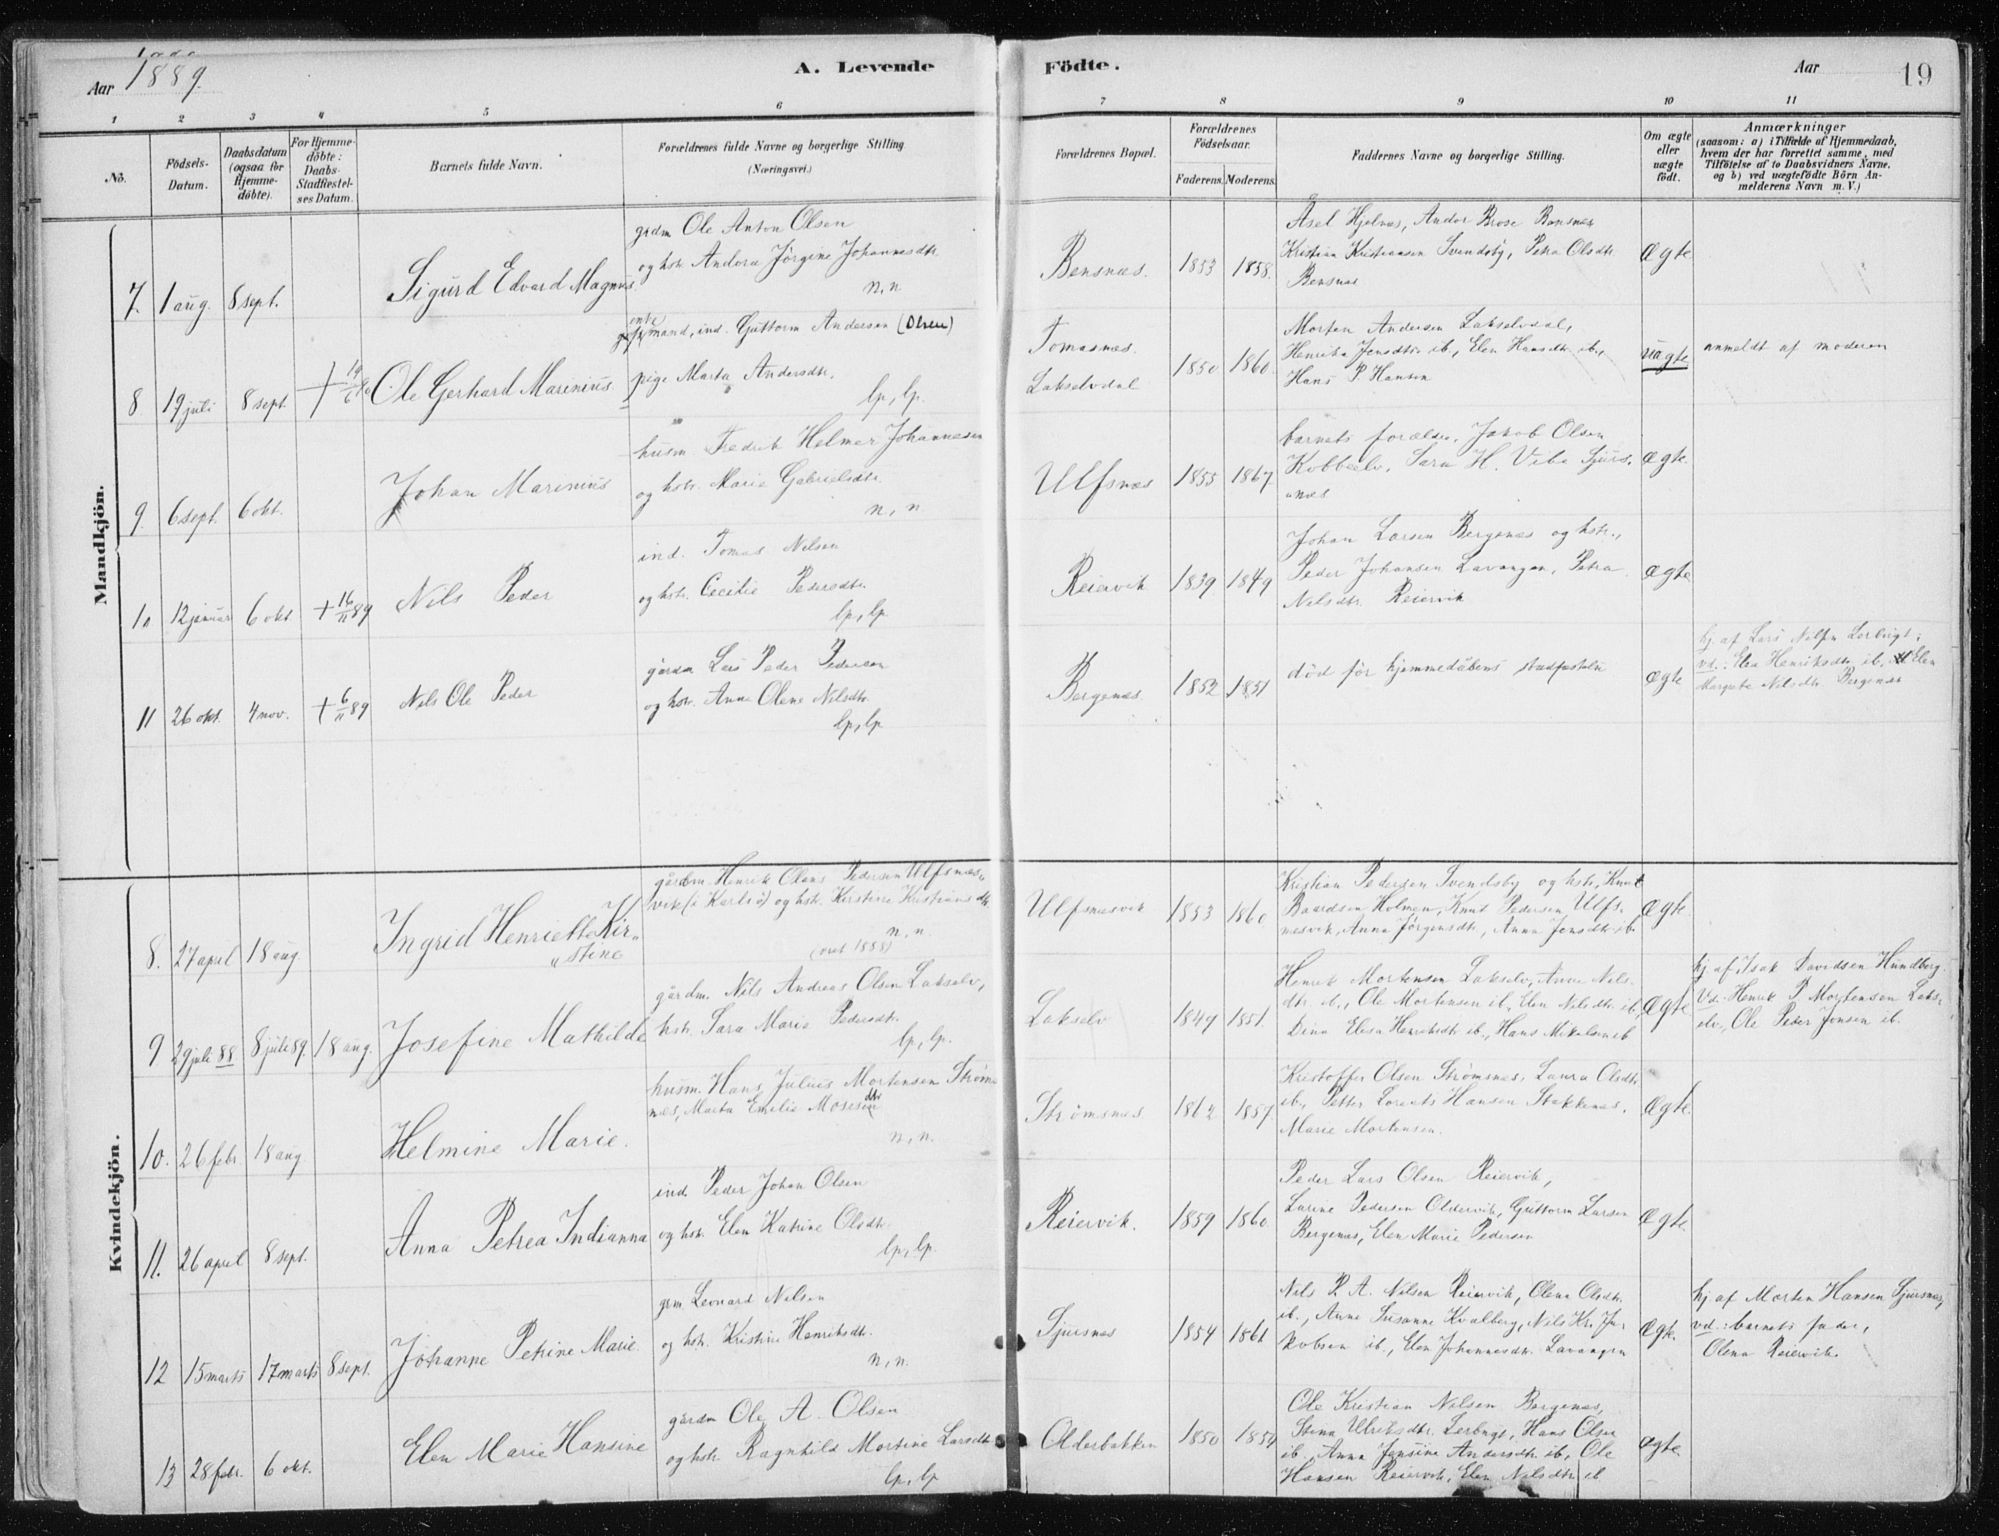 Aar 1889.
A. Levende Födte.
Aar
19
1 2 3 4 5 6 7 8 9 10 11
No.
Födsels-Datum.
Daabsdatum (ogsaa for Hjemme-döbte).
For Hjemme-döbte: Daabs-Stadfæstel-ses Datum.
Barnets fulde Navn.
Forældrenes fulde Navne og borgerlige Stilling (Næringsvei.)
Forældrenes Bopæl.
Forældrenes Födselsaar.
Faderens. Moderens.
Faddernes Navne og borgerlige Stilling.
Om ægte eller uægte födt.
Anmærkninger
(saasom: a) i Tilfælde af Hjemmedaab, hvem der har forrettet samme, med Tilföielse af to Daabsvidners Navne, og b) ved uægtefödte Börn An-melderens Navn m. V.)
Mandkjön.
7. 1 aug. 8 sept.
Sigurd Edvard Magnus
grdm Ole Anton Olsen
og hstr. Andora Jørgine Johannesdtr.
n, n
Bensnæs. 1853 1858.
Asel Hjelnæs, Andor Brose Bensnæs
Kristian Kristiansen Svendsby, Petra Olsdtr
Bensnæs
ægte
8. 19 juli 8 sept
Ole Gerhard Marinius
enke mand, ind. Guttorm Andersen (Olsen)
pige Marta Andersdtr.
lp, lp.
Tomasnæs.
Lakselvdal 1850 1860.
Morten Andersen Lakselvdal,
Henrika Jensdtr ib., Elen Hansdtr ib.,
Hans P. Hansen
uægte
anmeldt af moderen
9. 6 sept. 6 okt.
Johan Marinius
husm Fredrik Helmer Johannesen
og hstr. Marie Gabrielsdtr.
n, n
Ulfsnæs 1855 1867.
barnets forældre, Jakob Olsen
Kobbeelv. Sara H. Vibe Sjurs-
"næs
ægte.
10 12 januar 6 okt +16/11 89
Nils Peder
ind. Tomas Nilsen
og hstr. Cecilie Pedersdtr.
lp, lp
Reiervik 1839 1849
Johan Larsen Bergenæs og hstr.,
Peder Johansen Lavangen, Petra
Nilsdtr. Reiervik
ægte
11 26 okt. 4 nov. +6/11 89
Nils Ole Peder
gårdm Lars Peder Pedersen
og hstr. Anne Olene Nilsdtr.
lp, lp
Bergenæs 1852 1851
død før hjemmedåbens stadfæstelse
ægte
hj. af Lars Nilsen Lerbugt;
vd.: Elen Henriksdtr ib, Elen
Margrete Nilsdtr Bergenæs
Kvindekjön.
8. 27 april 18 aug.
Ingrid Henriette Kir"
"stine
gårdm. Henrik Olaus Pedersen Ulfsnæs-
vik (i Karlsø) og hstr. Kirstine Kristiansdtr.
n, n.
Ulfsnæsvik 1853 1860.
Kristian Pedersen Svendsby og hstr, Knut
Baardsen Holmen, Knut Pedersen Ulfs-
næsvik, Anna Jørgensdtr, Anna Jensdtr ib.
ægte
9 29 juli 88 8 juli 89. 18 aug.
Josefine Mathilde
(året 1888)
gårdm. Nils Andreas Olsen Lakselv,
hstr. Sara Marie Pedersdtr.
lp, lp.
Lakselv 1849 1851.
Henrik Mortensen Lakselv, Anne Nils-
dtr. ib., Ole Mortensen ib, Elen Nilsdtr ib,
Dina Elisa Henriksdtr ib., Hans Mikelsen ib
ægte
hj af Isak Davidsen Hundberg.
Vd. Henrik P Mortensen Laks-
elv, Ole Peder Jensen ib.
10. 26 febr. 18 aug
Helmine Marie.
husm. Hans Julius Mortensen Strøms
næs, Marta Emilie Mosesen dtr
n, n.
Strømsnæs 1862 1857
Kristoffer Olsen Strømsnæs, Laura Olsdtr
ib., Petter Lorents Hansen Stakkenæs,
Marie Mortensen.
ægte.
11. 26 april 8 sept.
Anna Petrea Indianna
ind. Peder Johan Olsen
og hstr. Elen Katrine Olsdtr.
lp, lp.
Reiervik. 1859 1860
Peder Lars Olsen Reiervik,
Larine Pedersen Oldervik, Guttorm Larsen
Bergenæs, Elen Marie Pedersen
ægte
12 15 marts 17 marts 8 sept.
Johanne Petrine Marie.
grm. Leonard Nilsen
og hstr. Kristine Henriksdtr.
n, n.
Sjursnæs 1854 1861
Nils P. A. Nilsen Reiervik, Olena Olsdtr.
ib., Anne Susanne Kvalberg, Nils Kr. Ja-
kobsen ib., Elen Johannesdtr. Lavangen
ægte.
hj af Morten Hansen Sjursnæs,
vd.: barnets fader,
Olena Reiervik.
13 28 febr. 6 okt.
Elen Marie Hansine
gårdm Ole A. Olsen
og hstr Ragnhild Mortine Larsdtr
lp, lp
Olderbakken 1850 1854
Ole Kristian Nilsen Bergenæs,
Stina Ulriksdtr. Lerbugt, Hans Olsen
ib., Anna Jensine Andersdtr ib., Ole
Hansen Reiervik, Elen Nilsdtr ib
ægte